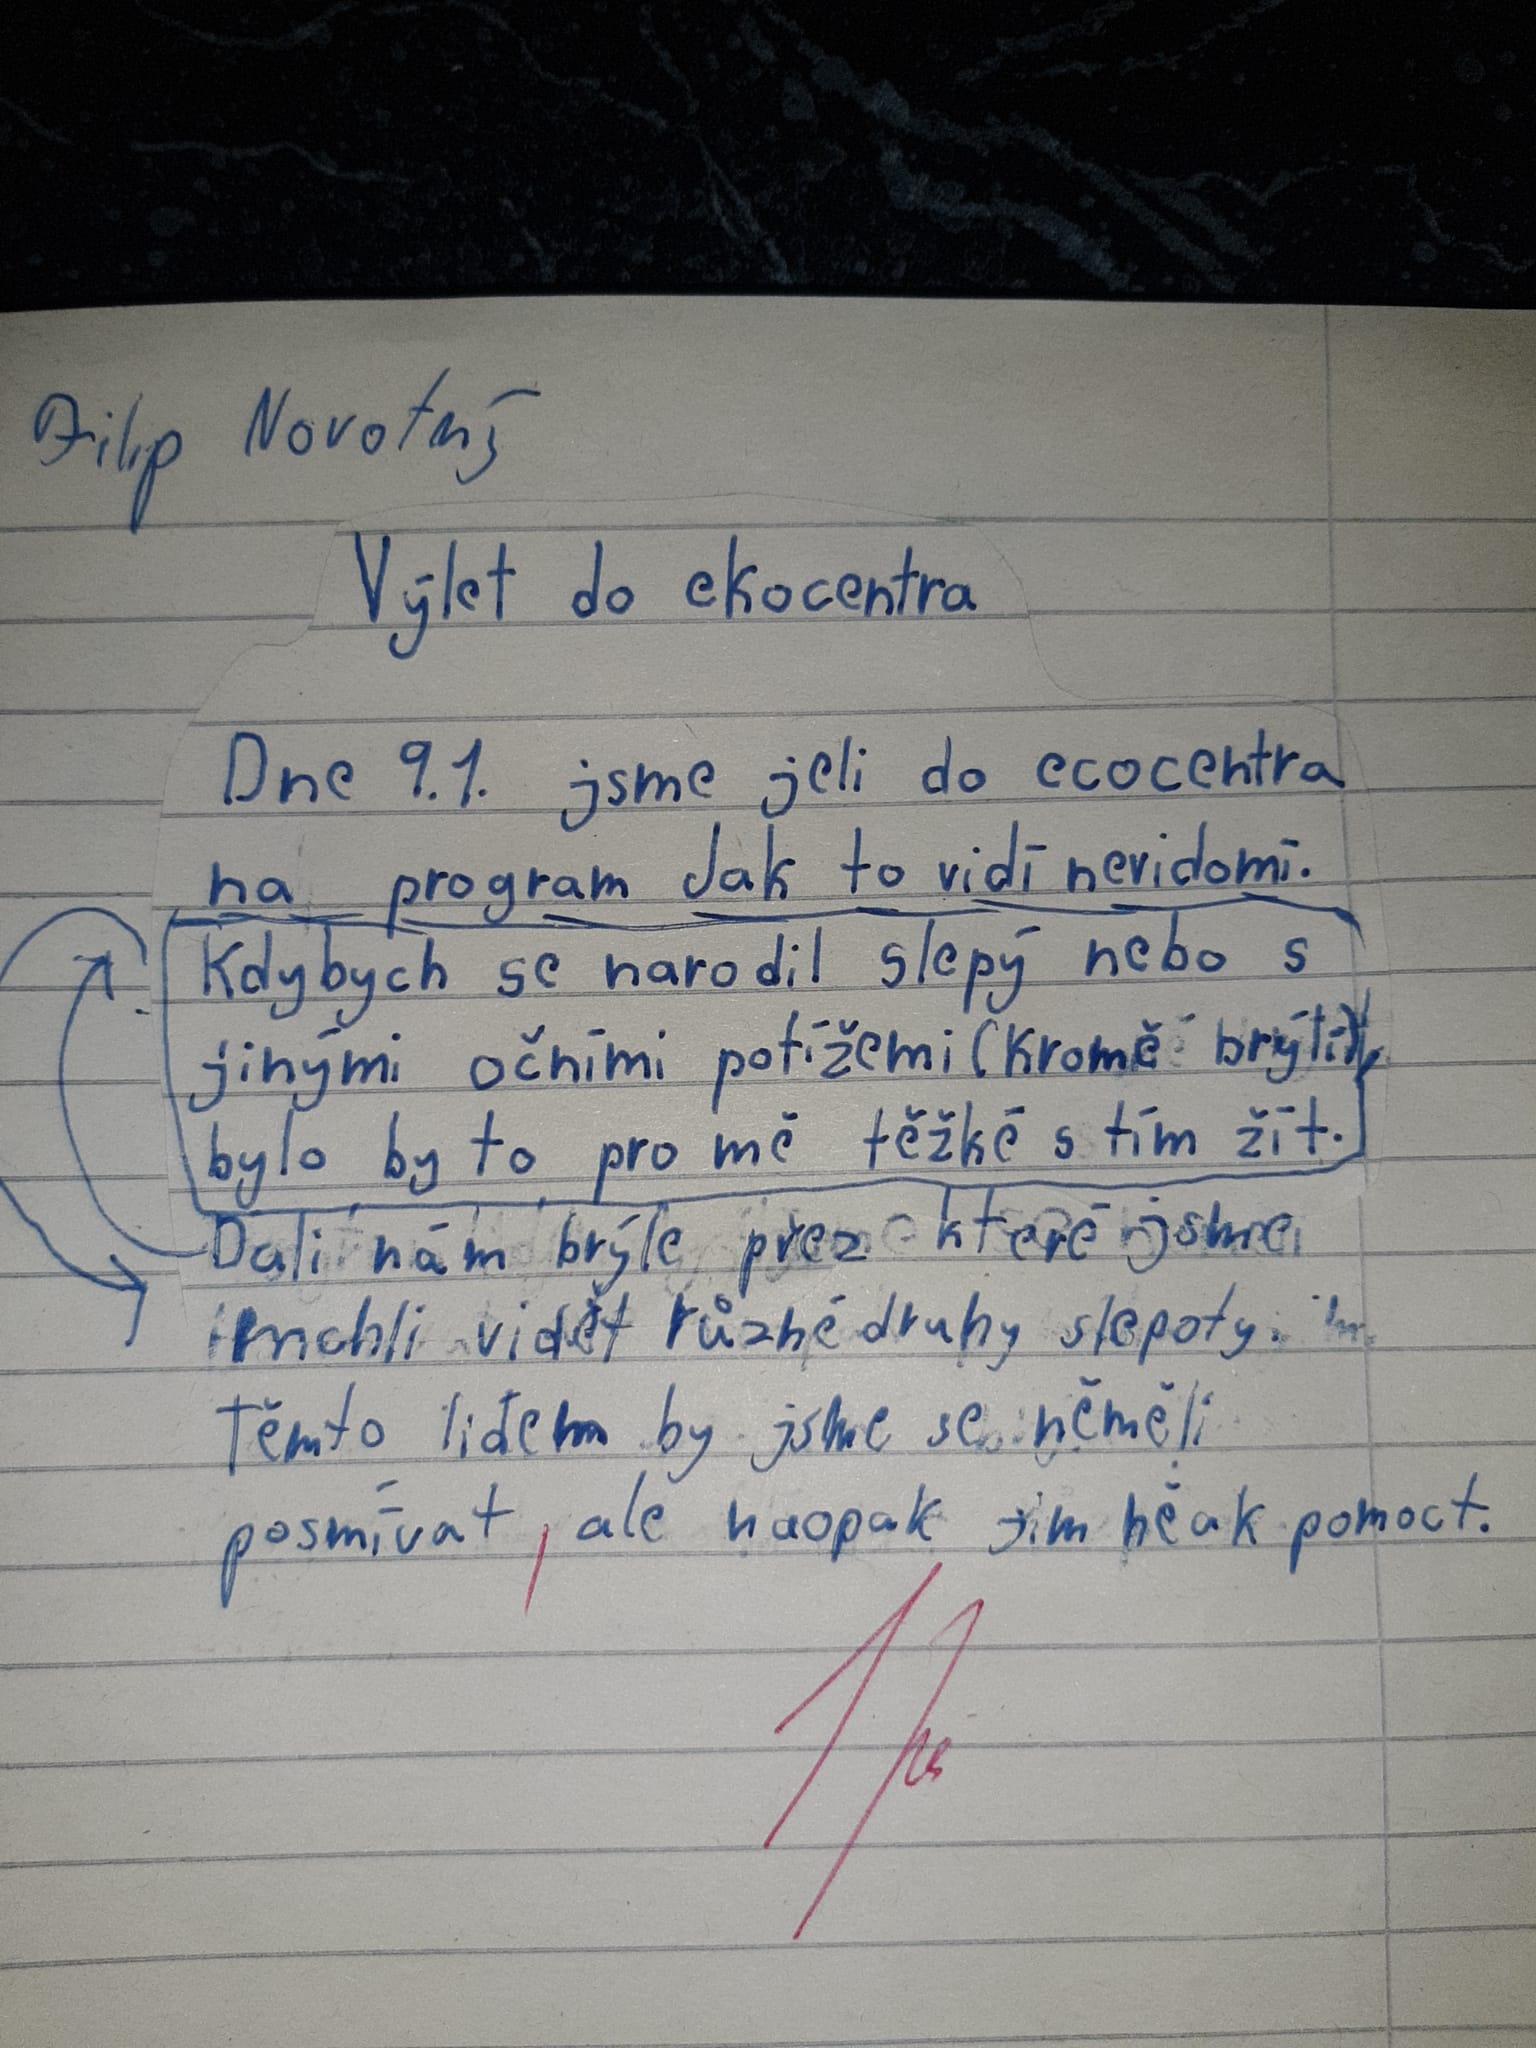 Filip Novotný
Výlet do ekocentra
Dne 9.1. jsme jeli do ecocentra
na program Jak to vidí nevidomí.
Kdybych se narodil slepý nebo s
jinými očními potížemi (kromě brýlí),
bylo by to pro mě těžké s tím žít.
Dali nám brýle přez které jsme
mohli vidět různé druhy slepoty.
Těmto lidem by jsme se neměli
posmívat, ale naopak jim něak pomoct.
1